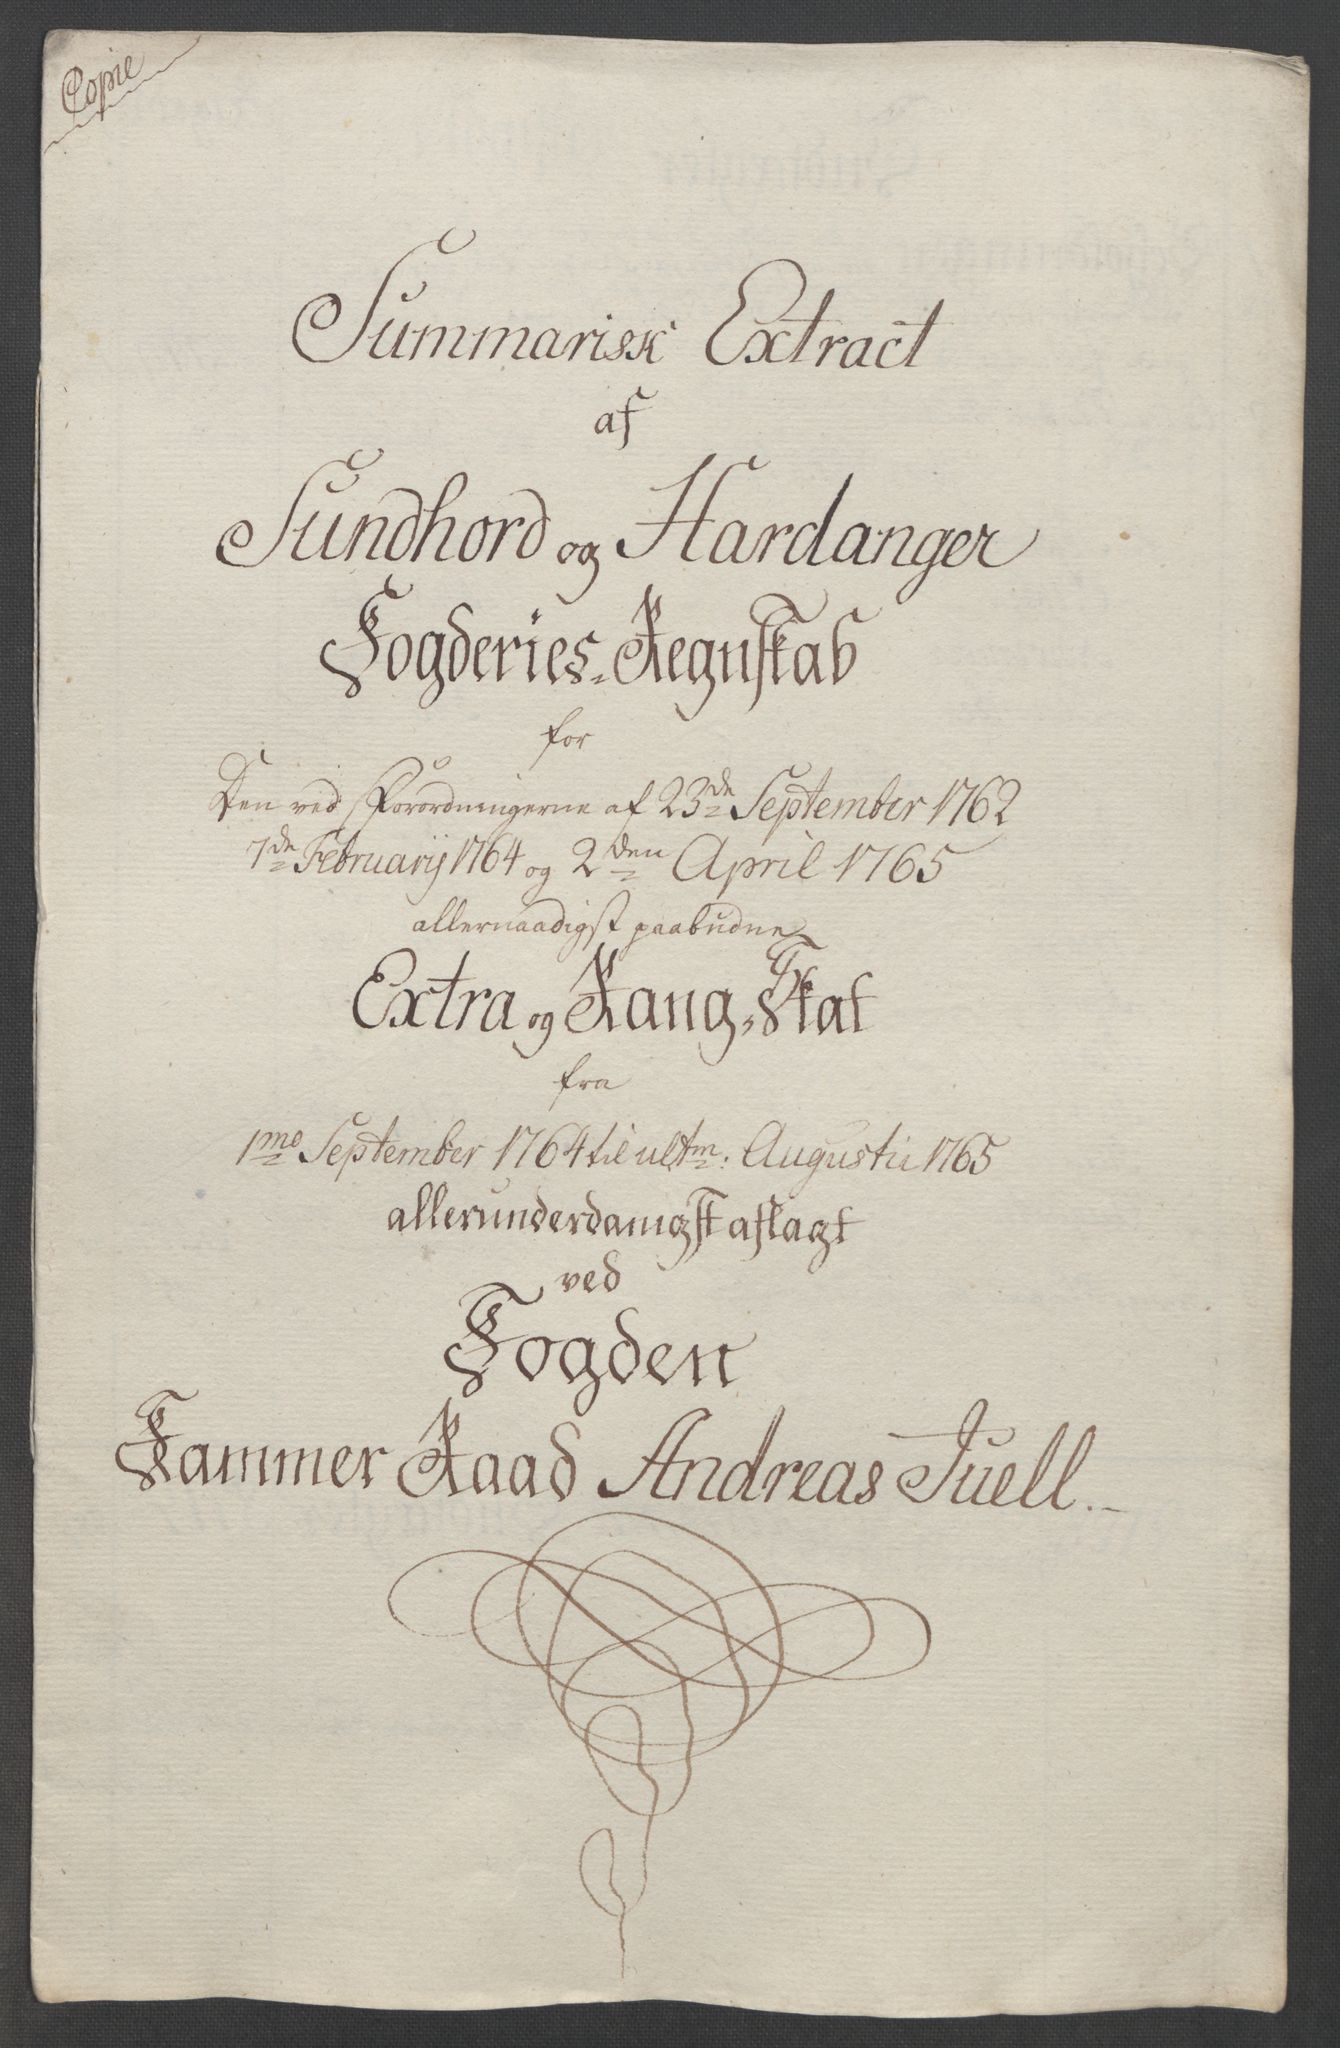 Copie
Summarisk Extract
af
Sundhord og Hardanger
Fogderies Regnskab
for
Den ved Forordningerne af 23de September 1762
7de Februarij 1764 og 2den April 1765
allernaadigst paabudne
Extra og Rang-Skat
fra
1mo September 1764 til ultm: Augustii 1765
allerunderdanigst aflagt
ved
Fogden
Kammer Raad Andreas Juell